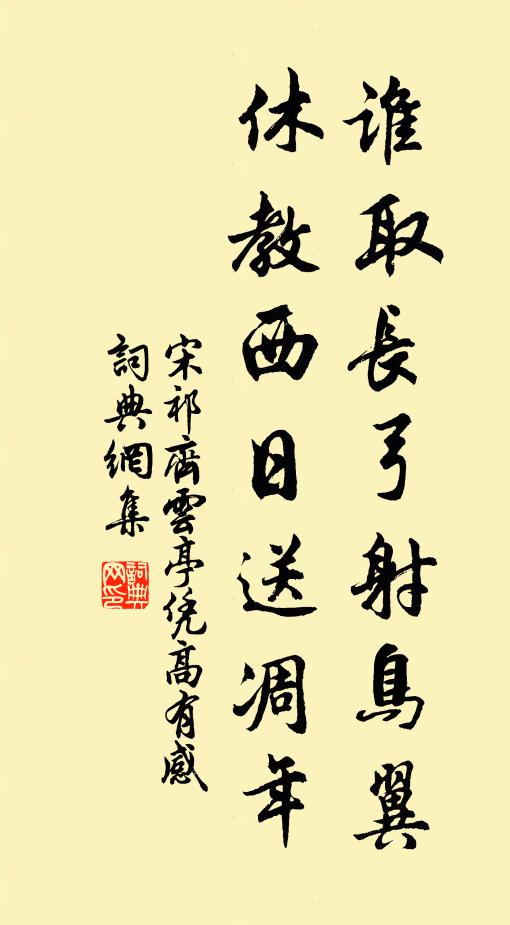 誰取長弓射鳥翼
休教西日送凋年
宋祁齊雲亭凭高有感
詞典網集
詞典网印